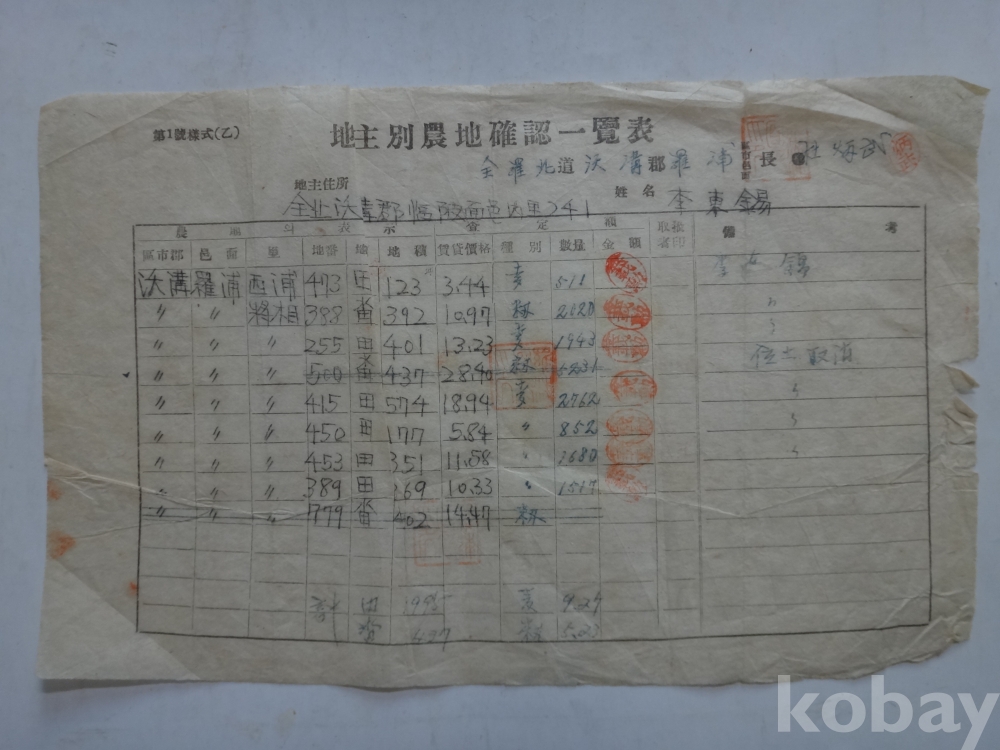 第1號樣式(乙)
地主別農地確認一覽表
全羅北道沃溝郡羅浦 區市邑面 長
地主住所 姓名 李東錫
全北沃溝郡臨陂面邑內里241
農地의表示 査定額 取扱者印 備考
區市郡 邑面 里 地番 地目 地積 賃貸價格 種別 數量 金額
沃溝 羅浦 西浦 473 田 123 3.44 麦 511
〃 〃 將相 388 畓 392 10.97 籾 2020 〃
〃 〃 〃 255 田 401 13.23 麦 1943 〃
〃 〃 〃 500 畓 437 28.40 籾 5231 位土取消
〃 〃 〃 415 田 574 18.94 麦 2762 〃
〃 〃 〃 450 田 177 5.84 〃 852 〃
〃 〃 〃 453 田 351 11.58 〃 1680 〃
〃 〃 〃 389 田 369 10.33 〃 1517
〃 〃 〃 779 畓 402 14.47 籾
計 田 1995 麦 9.27
畓 437 籾
kobay